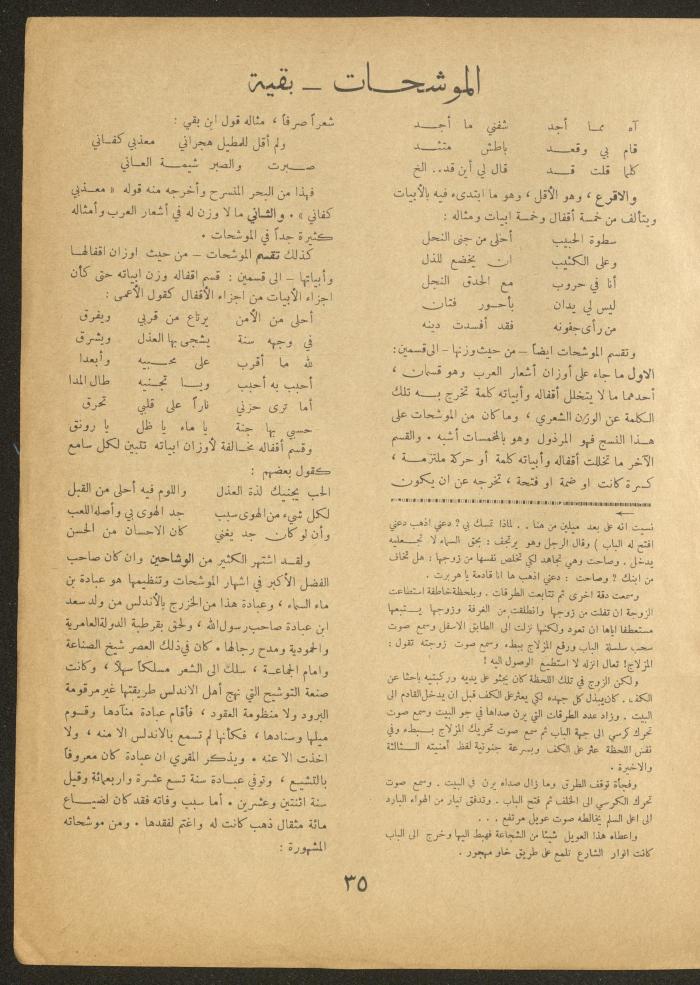 الموشحات — بقية
آه مما أجد شفني ما أجد
قام بي وقعد باطش متئد
كلما قلت قد قال لي أين قد.. الخ
والاقرع ، وهو الأقل ، وهو ما ابتدىء فيه بالأبيات
ويتألف من خمسة أقفال وخمسة ابيات ومثاله :
سطوة الحبيب أحلى من جنى النحل
وعلى الكئيب ان يخضع للذل
أنا في حروب مع الحدق النجل
ليس لي يدان بأحور فتان
من رأى جفونه فقد أفسدت دينه
وتقسم الموشحات ايضاً — من حيث وزنها — الى قسمين:
الاول ما جاء على أوزان أشعار العرب وهو قسمان ،
أحدهما ما لا يتخلل أقفاله وأبياته كلمة تخرج به تلك
الكلمة عن الوزن الشعري ، وما كان من الموشحات على
هذا النسج فهو المرذول وهو بالمخمسات أشبه . والقسم
الآخر ما تخللت أقفاله وأبياته كلمة أو حركة ملتزمة ،
كسرة كانت او ضمة او فتحة ، تخرجه عن ان يكون
نسيت انه على بعد ميلين من هنا . . لماذا تمسك بي ؟ دعني اذهب دعني
افتح له الباب ) وقال الرجل وهو يرتجف : بحق السماء لا تجعليه
يدخل . وصاحت وهي تجاهد لكي تخلص نفسها من زوجها : هل تخاف
من ابنك ؟ وصاحت : دعني اذهب ها انا قادمة يا هربرت .
وسمعت دقة اخرى ثم تتابعت الطرقات . وبلحظة خاطفة استطاعت
الزوجة ان تفلت من زوجها وانطلقت من الغرفة وزوجها يتبعها
مستعطفا اياها ان تعود ولكنها نزلت الى الطابق الاسفل وسمع صوت
سحب سلسلة الباب ورفع المزلاج ببطء وسمع صوت زوجته تقول :
المزلاج! تعال انزله لا استطيع الوصول اليه !
ولكن الزوج في تلك اللحظة كان يجثو على يديه وركبتيه باحثا عن
الكف . كان يبذل كل جهده لكي يعثر على الكف قبل ان يدخل القادم الى
البيت . وزاد عدد الطرقات التي يرن صداها في جو البيت وسمع صوت
تحرك كرسي الى جهة الباب ثم سمع صوت تحريك المزلاج ببطء وفي
نفس اللحظة عثر على الكف وبسرعة جنونية لفظ أمنيته الثالثة
والاخيرة .
وفجأة توقف الطرق وما زال صداه يرن في البيت . وسمع صوت
تحرك الكرسي الى الخلف ثم فتح الباب . وتدفق تيار من الهواء البارد
الى اعلى السلم يخالطه صوت عويل مرتفع . . .
واعطاه هذا العويل شيئا من الشجاعة فهبط اليها وخرج الى الباب
كانت انوار الشارع تلمع على طريق خاو مهجور .
شعراً صرفاً ، مثاله قول ابن بقي :
ولم أقل للمطيل هجراني معذبي كفاني
صبرت والصبر شيمة العاني
فهذا من البحر المنسرح وأخرجه منه قوله « معذبي
كفاني » . والثاني ما لا وزن له في أشعار العرب وأمثاله
كثيرة جداً في الموشحات .
كذلك تقسم الموشحات — من حيث اوزان اقفالها
وأبياتها — الى قسمين : قسم اقفاله وزن ابياته حتى كأن
اجزاء الأبيات من اجزاء الأقفال كقول الأعمى :
أحلى من الأمن يرتاع من قربي ويفرق
في وجهه سنة يشجى بها العذل ويشرق
لله ما أقرب على محبيه وأبعدا
أحبب به أحبب ويا تجنيه طال المدا
أما ترى حزني ناراً على قلبي تحرق
حسبي بها جنة يا ماء يا ظل يا رونق
وقسم أقفاله مخالفة لأوزان ابياته تتبين لكل سامع
كقول بعضهم :
الحب يجنيك لذة العذل واللوم فيه أحلى من القبل
لكل شيء من الهوى سبب جد الهوى بي وأصله اللعب
وأن لو كان جد يغني كان الاحسان من الحسن
ولقد اشتهر الكثير من الوشاحين وان كان صاحب
الفضل الأكبر في اشهار الموشحات وتنظيمها هو عبادة بن
ماء السماء ، وعبادة هذا من الخزرج بالأندلس من ولد سعد
ابن عبادة صاحب رسول الله ، ولحق بقرطبة الدولة العامرية
والحمودية ومدح رجالها . كان في ذلك العصر شيخ الصناعة
وامام الجماعة ، سلك الى الشعر مسلكاً سهلاً ، وكانت
صنعة التوشيح التي نهج أهل الاندلس طريقتها غير مرقومة
البرود ولا منظومة العقود ، فأقام عبادة منآدها وقوم
ميلها وسنادها ، فكأنها لم تسمع بالاندلس الا منه ، ولا
اخذت الا عنه . ويذكر المقري ان عبادة كان معروفاً
بالتشيع ، وتوفي عبادة سنة تسع عشرة واربعمائة وقيل
سنة اثنتين وعشرين . أما سبب وفاته فقد كان لضياع
مائة مثقال ذهب كانت له واغتم لفقدها . ومن موشحاته
المشهورة :
٣٥